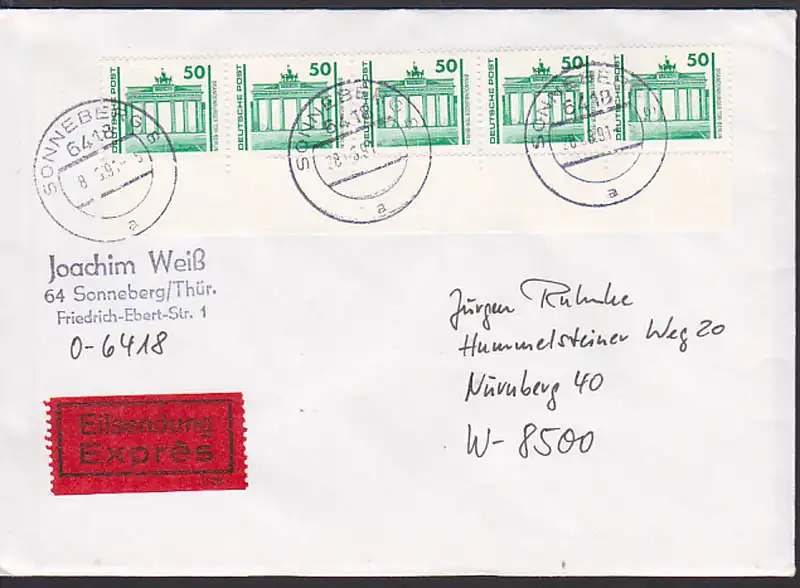 DEUTSCHE POST 50 BRANDENBURGER TOR BERLIN
DEUTSCHE POST 50 BRANDENBURGER TOR BERLIN
DEUTSCHE POST 50 BRANDENBURGER TOR BERLIN
DEUTSCHE POST 50 BRANDENBURGER TOR BERLIN
DEUTSCHE POST 50 BRANDENBURGER TOR BERLIN
SONNEBERG
6418
a
SONNEBERG
6418
a
SONNEBERG
6418
a
Joachim Weiß
64 Sonneberg/Thür.
Friedrich-Ebert-Str. 1
O-6418
Eilsendung
Exprès
Jürgen
Hummelsteiner Weg 20
Nürnberg 40
W-8500